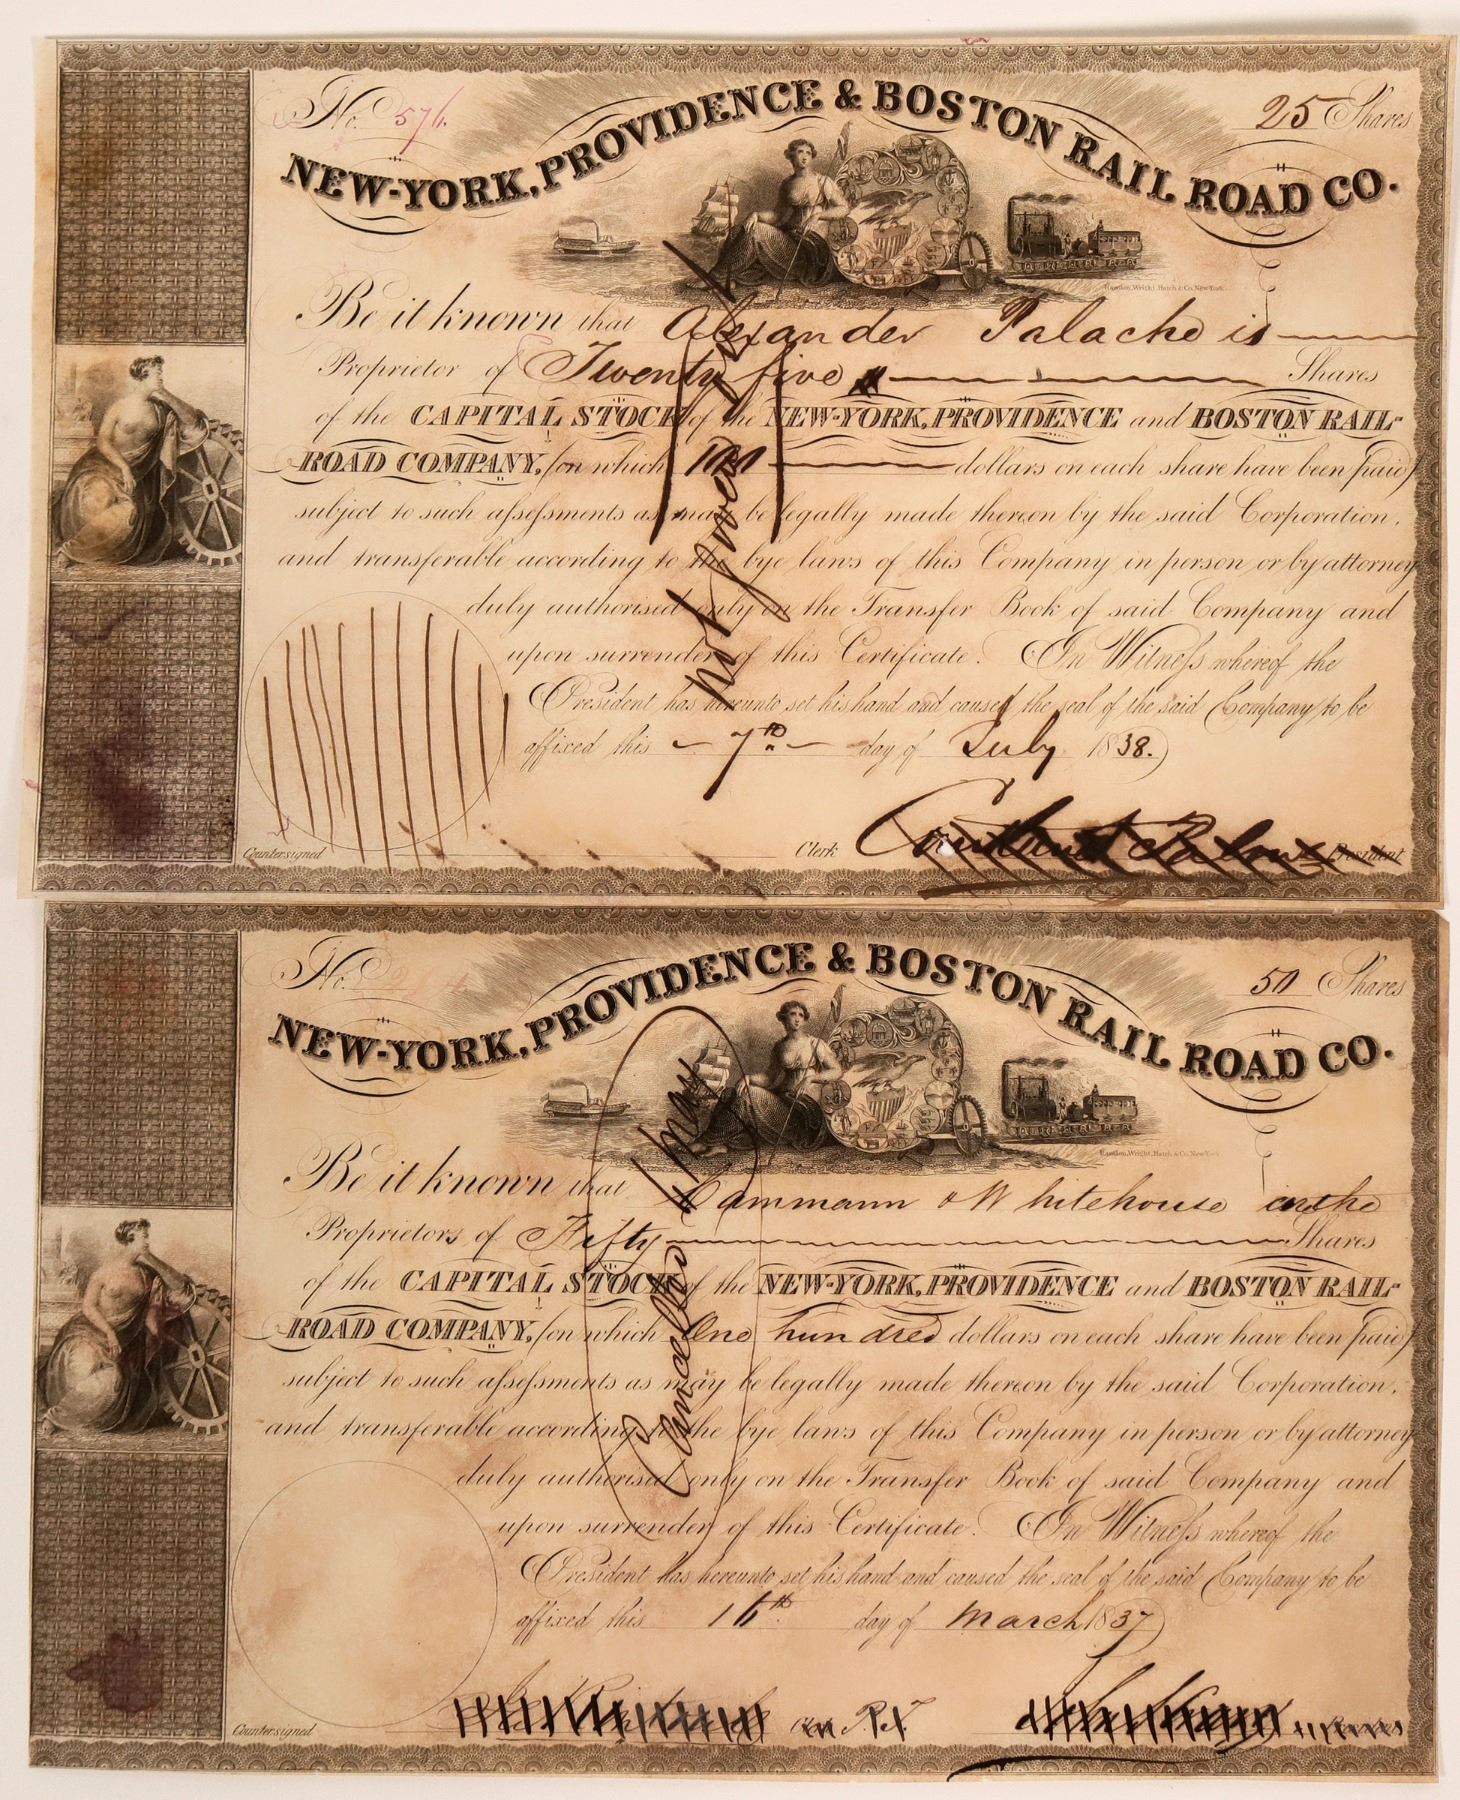 No. 576.
25 Shares
NEW-YORK, PROVIDENCE & BOSTON RAIL ROAD CO.
Rawdon, Wright, Hatch & Co. New York.
Be it known that Alexander Palache is
Proprietor of Twenty five Shares
of the CAPITAL STOCK of the NEW-YORK, PROVIDENCE and BOSTON RAIL-
ROAD COMPANY, (on which 100 dollars on each share have been paid)
subject to such assessments as may be legally made thereon by the said Corporation,
and transferable according to the bye laws of this Company in person or by attorney
duly authorised only on the Transfer Book of said Company and
upon surrender of this Certificate. In Witness whereof the
President has hereunto set his hand and caused the seal of the said Company to be
affixed this 7th day of July 1838.
not
Countersigned Clerk President
No.
50 Shares
NEW-YORK, PROVIDENCE & BOSTON RAIL ROAD CO.
Rawdon, Wright, Hatch & Co. New York
Be it known that Cammann & Whitehouse are the
Proprietors of Fifty Shares
of the CAPITAL STOCK of the NEW-YORK, PROVIDENCE and BOSTON RAIL-
ROAD COMPANY, (on which One hundred dollars on each share have been paid)
subject to such assessments as may be legally made thereon by the said Corporation,
and transferable according to the bye laws of this Company in person or by attorney
duly authorised only on the Transfer Book of said Company and
upon surrender of this Certificate. In Witness whereof the
President has hereunto set his hand and caused the seal of the said Company to be
affixed this 16th day of March 1837
Cancelled May
Countersigned